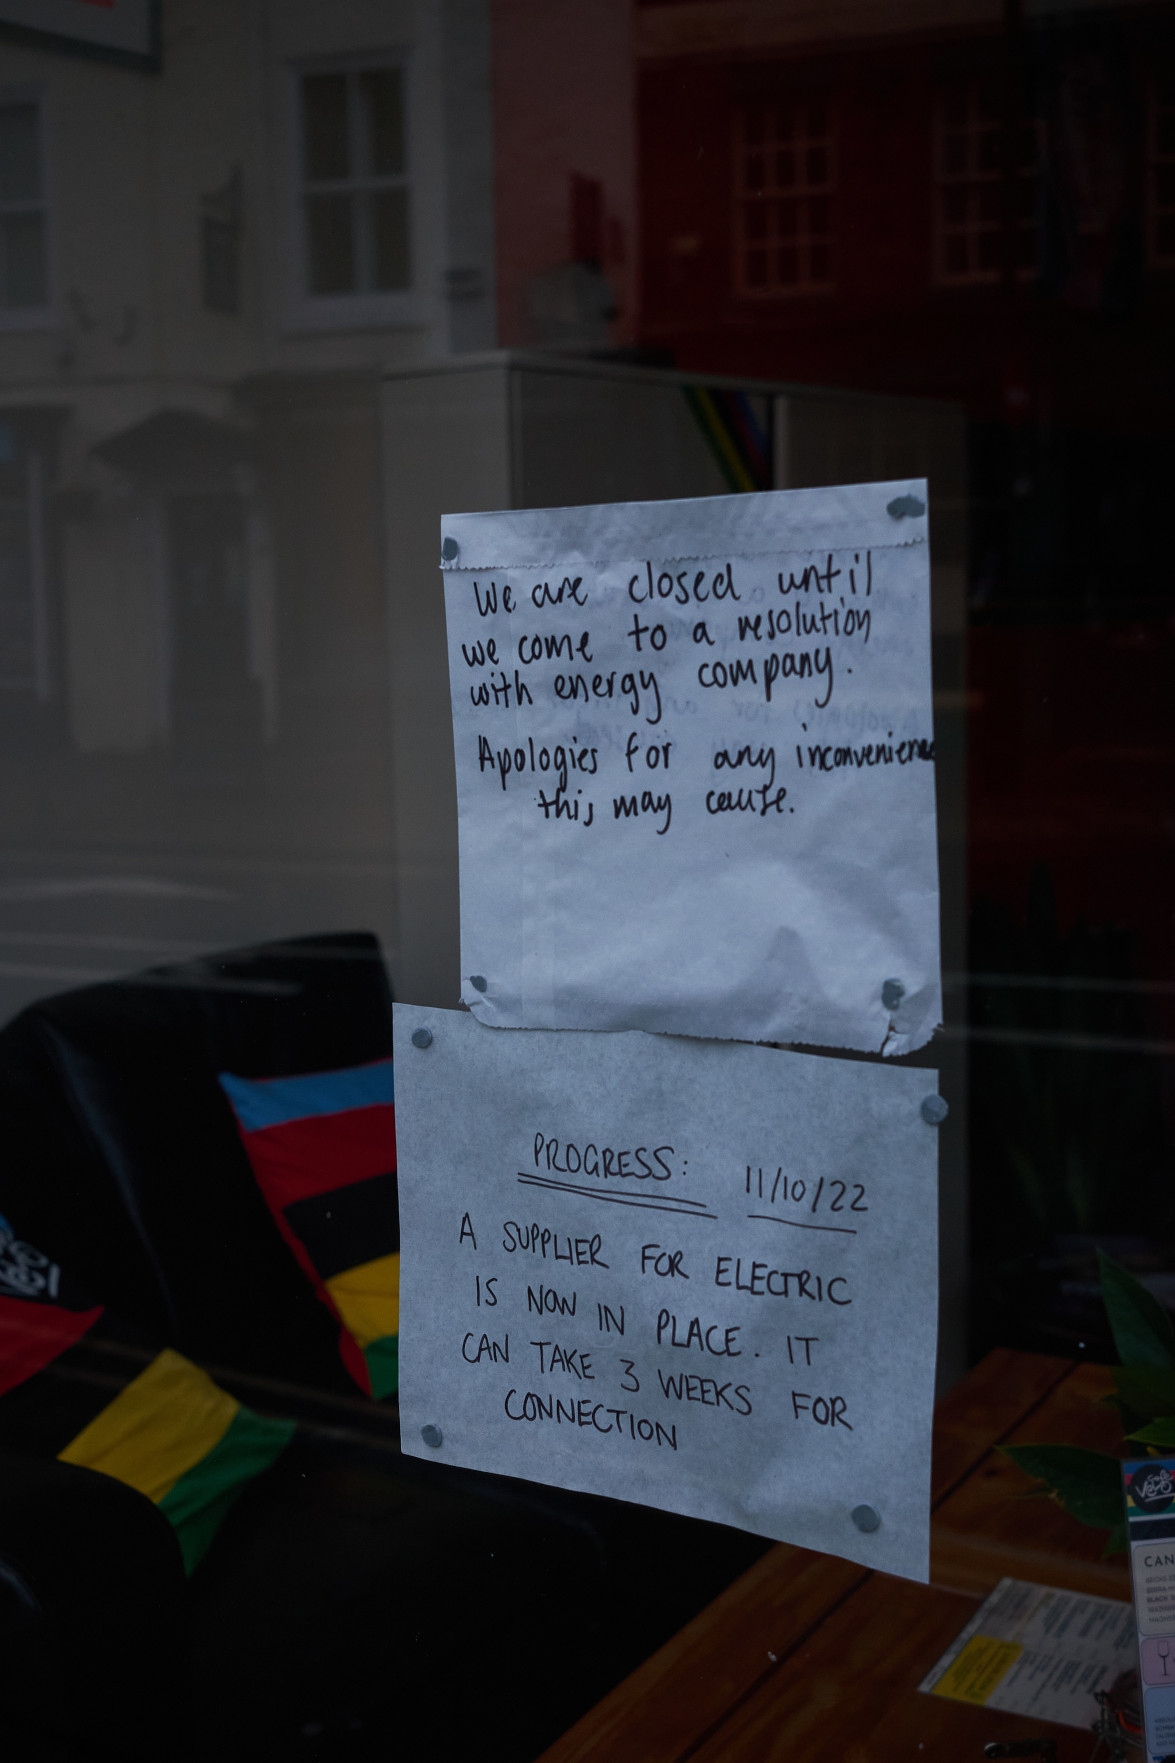 We are closed until
we come to a resolution
with energy company.
Apologies for any inconvenience
this may cause.
PROGRESS: 11/10/22
A SUPPLIER FOR ELECTRIC
IS NOW IN PLACE. IT
CAN TAKE 3 WEEKS FOR
CONNECTION
Velo
CAN